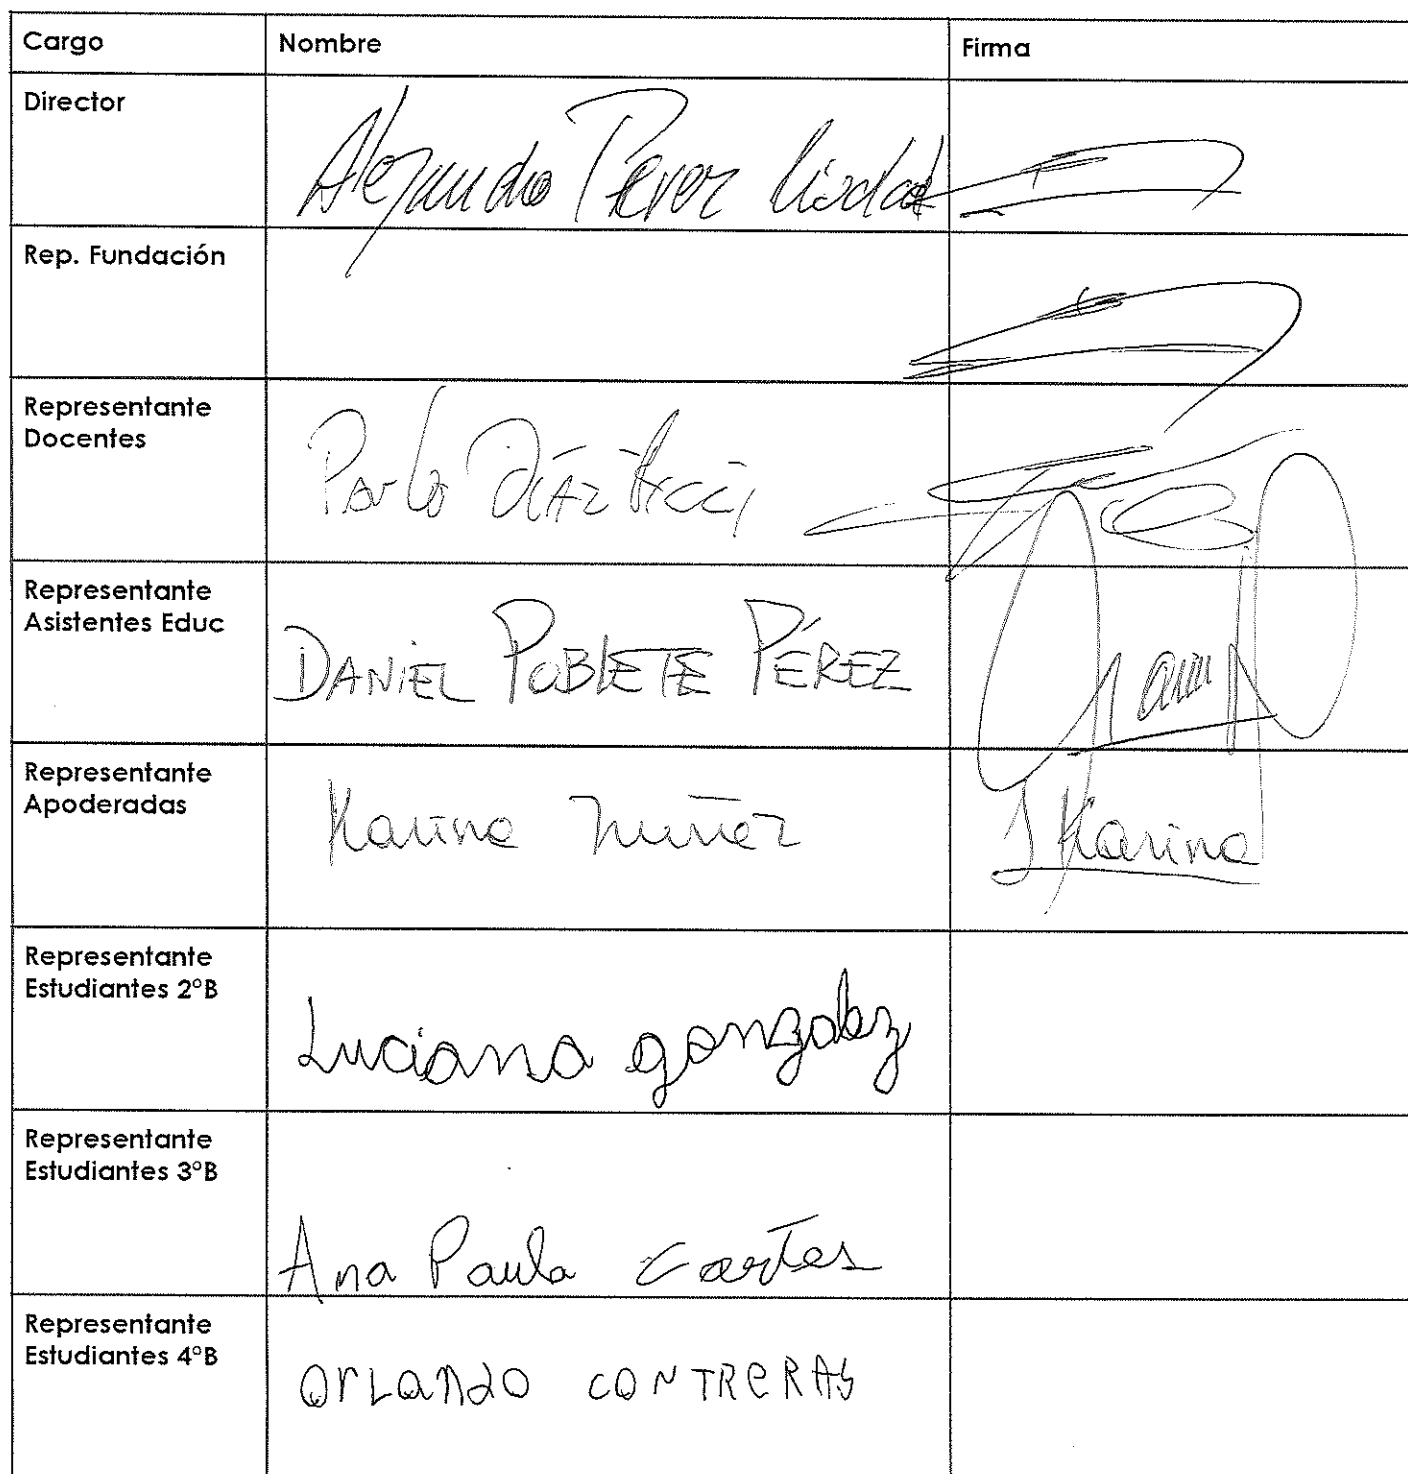 Cargo Nombre Firma
Director Alejandro Pérez
Rep. Fundación
Representante
Docentes
Pablo Díaz Ricci
Representante
Asistentes Educ
DANIEL POBLETE PÉREZ
Representante
Apoderadas
Karina Nuñez Karina
Representante
Estudiantes 2°B
Luciana gonzalez
Representante
Estudiantes 3°B
Ana Paula Cortes
Representante
Estudiantes 4°B
OrLanDO CONTReRAS